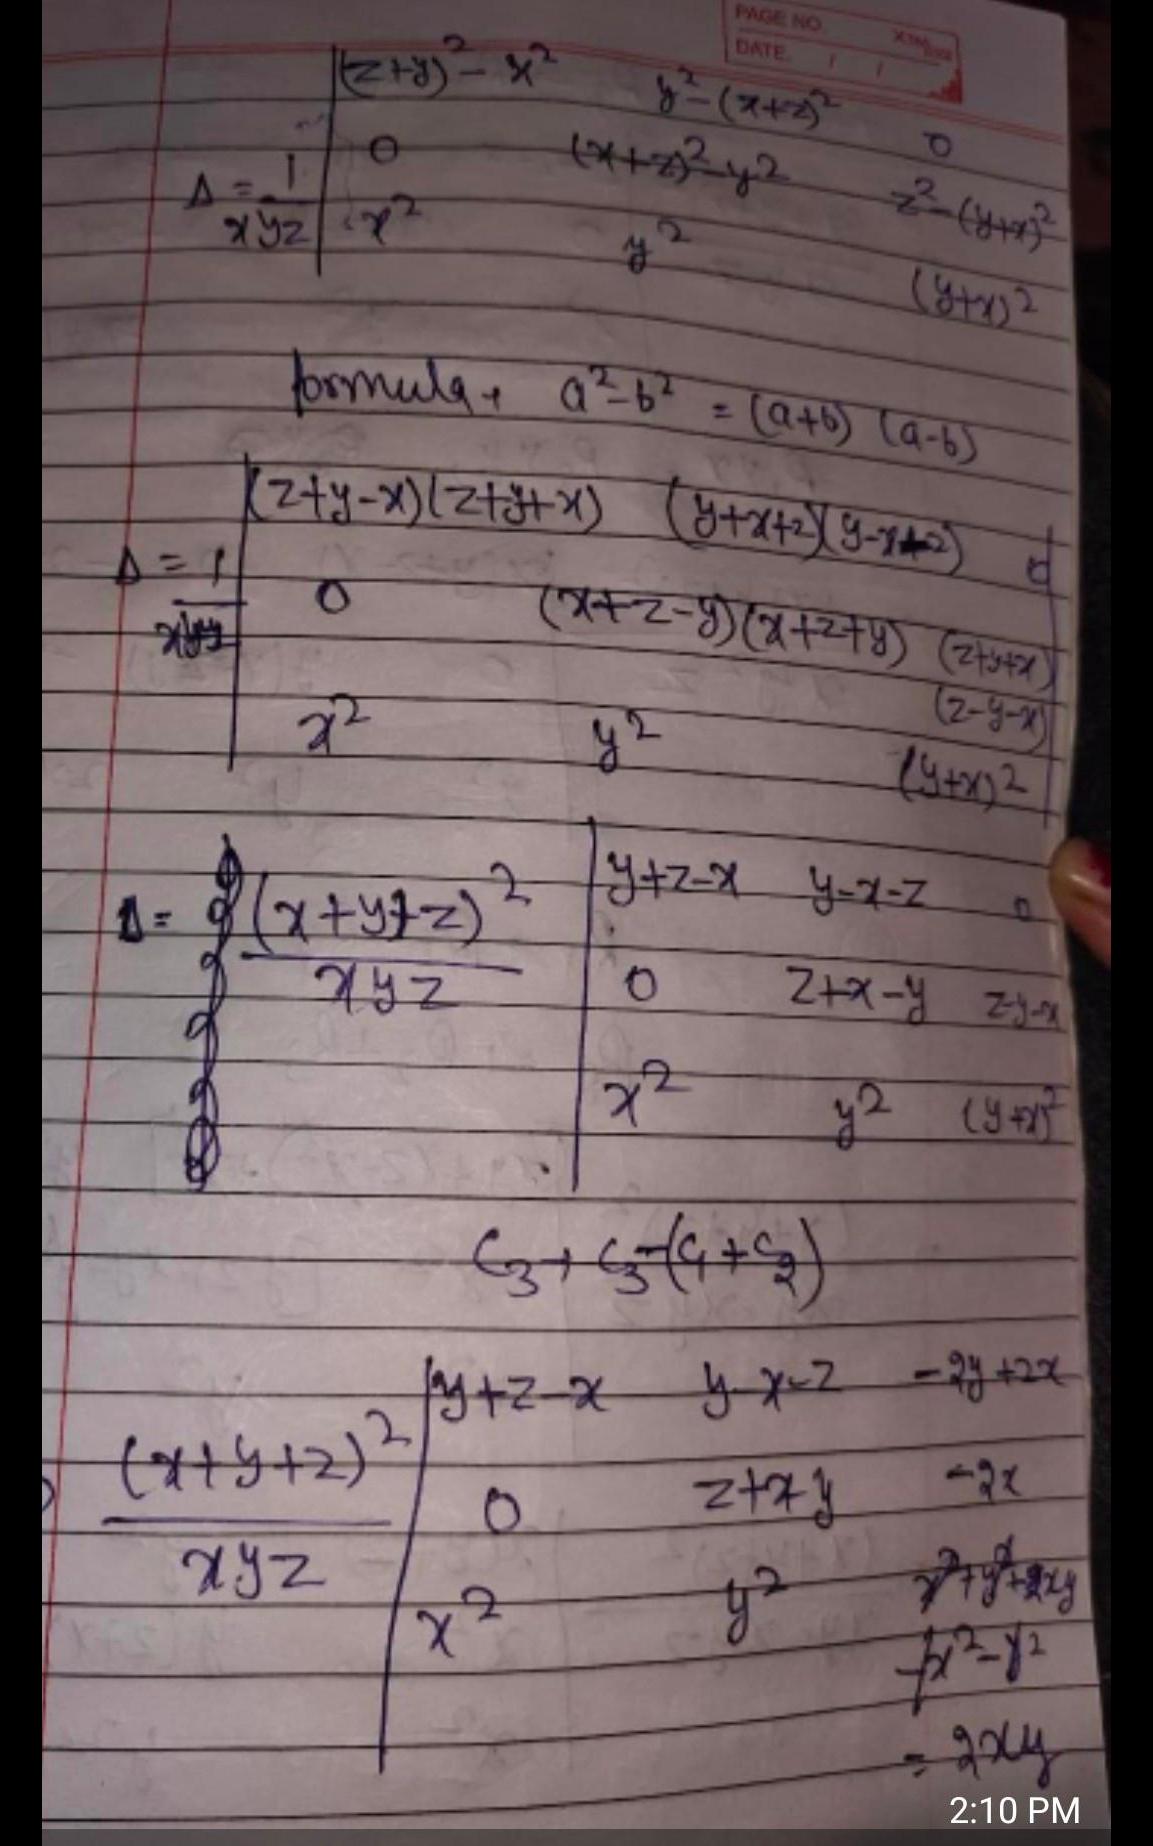 PAGE NO.
DATE / /
(z+y)² - x²  y² - (x+z)²  0
Δ = 1/xyz  0  (x+z)² - y²  z² - (y+x)²
x²  y²  (y+x)²
formula → a² - b² = (a+b) (a-b)
(z+y-x)(z+y+x)  (y+x+z)(y-x-z)  0
Δ = 1/xyz  0  (x+z-y)(x+z+y)  (z+y+x)
(z-y-x)
x²  y²  (y+x)²
Δ = (x+y+z)²/xyz  y+z-x  y-x-z  0
0  z+x-y  z-y-x
x²  y²  (y+x)²
C₃ → C₃-(C₁+C₂)
(x+y+z)²/xyz  y+z-x  y-x-z  -2y+2x
0  z+x-y  -2x
x²  y²  x²+y²+2xy
-x²-y²
= 2xy
2:10 PM